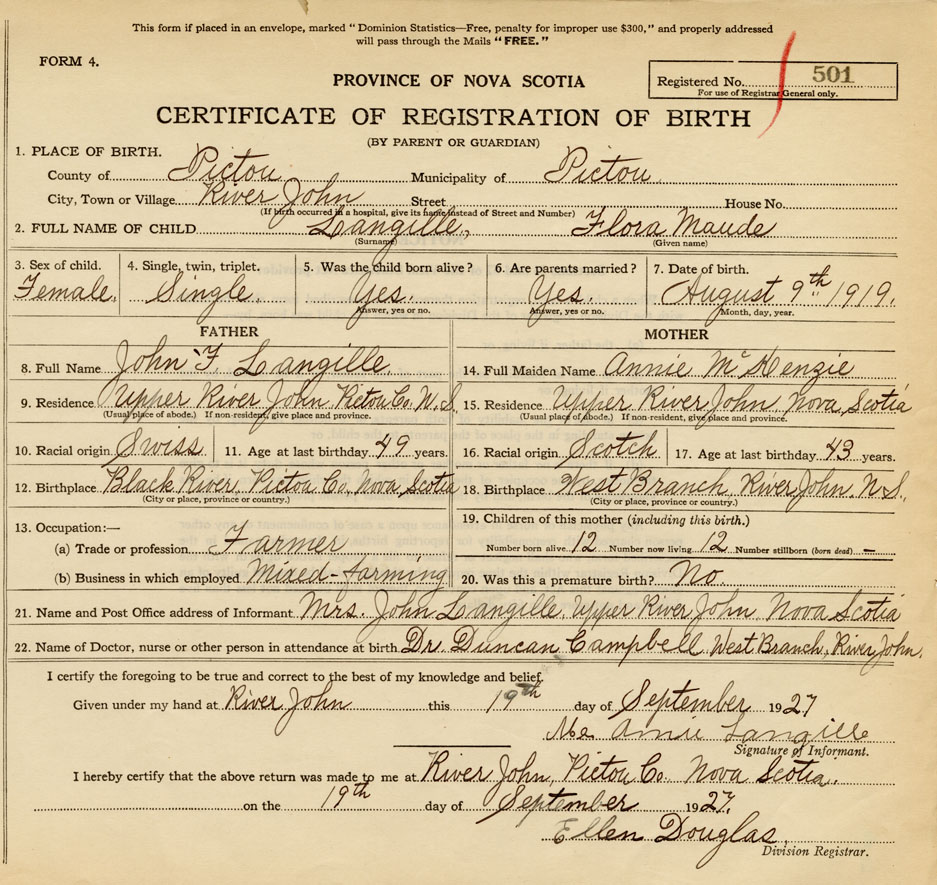 This form if placed in an envelope, marked "Dominion Statistics—Free, penalty for improper use $300," and properly addressed
will pass through the Mails "FREE."
FORM 4.
PROVINCE OF NOVA SCOTIA
Registered No. 501
For use of Registrar General only.
CERTIFICATE OF REGISTRATION OF BIRTH
(BY PARENT OR GUARDIAN)
1. PLACE OF BIRTH.
County of Pictou Municipality of Pictou
City, Town or Village River John Street House No.
(If birth occurred in a hospital, give its name instead of Street and Number)
2. FULL NAME OF CHILD Langille, Flora Maude
(Surname) (Given name)
3. Sex of child. 4. Single, twin, triplet. 5. Was the child born alive? 6. Are parents married? 7. Date of birth.
Female. Single. Yes. Yes. August 9th 1919.
Answer, yes or no. Answer, yes or no. Month, day, year.
FATHER MOTHER
8. Full Name John F. Langille 14. Full Maiden Name Annie McKenzie
9. Residence Upper River John Pictou Co. N.S. 15. Residence Upper River John Nova Scotia
(Usual place of abode.) If non-resident, give place and province. (Usual place of abode.) If non-resident, give place and province.
10. Racial origin Swiss 11. Age at last birthday 49 years. 16. Racial origin Scotch 17. Age at last birthday 43 years.
12. Birthplace Black River, Pictou Co. Nova Scotia 18. Birthplace West Branch River John. N.S.
(City or place, province or country.) (City or place, province or country.)
13. Occupation:— 19. Children of this mother (including this birth.)
(a) Trade or profession Farmer Number born alive 12 Number now living 12 Number stillborn (born dead) –
(b) Business in which employed Mixed-farming 20. Was this a premature birth? No.
21. Name and Post Office address of Informant Mrs. John Langille, Upper River John, Nova Scotia
22. Name of Doctor, nurse or other person in attendance at birth Dr. Duncan Campbell West Branch, River John.
I certify the foregoing to be true and correct to the best of my knowledge and belief.
Given under my hand at River John this 19th day of September 1927
Annie Langille
Signature of Informant.
I hereby certify that the above return was made to me at River John, Pictou Co. Nova Scotia.
on the 19th day of September 1927.
Ellen Douglas.
Division Registrar.